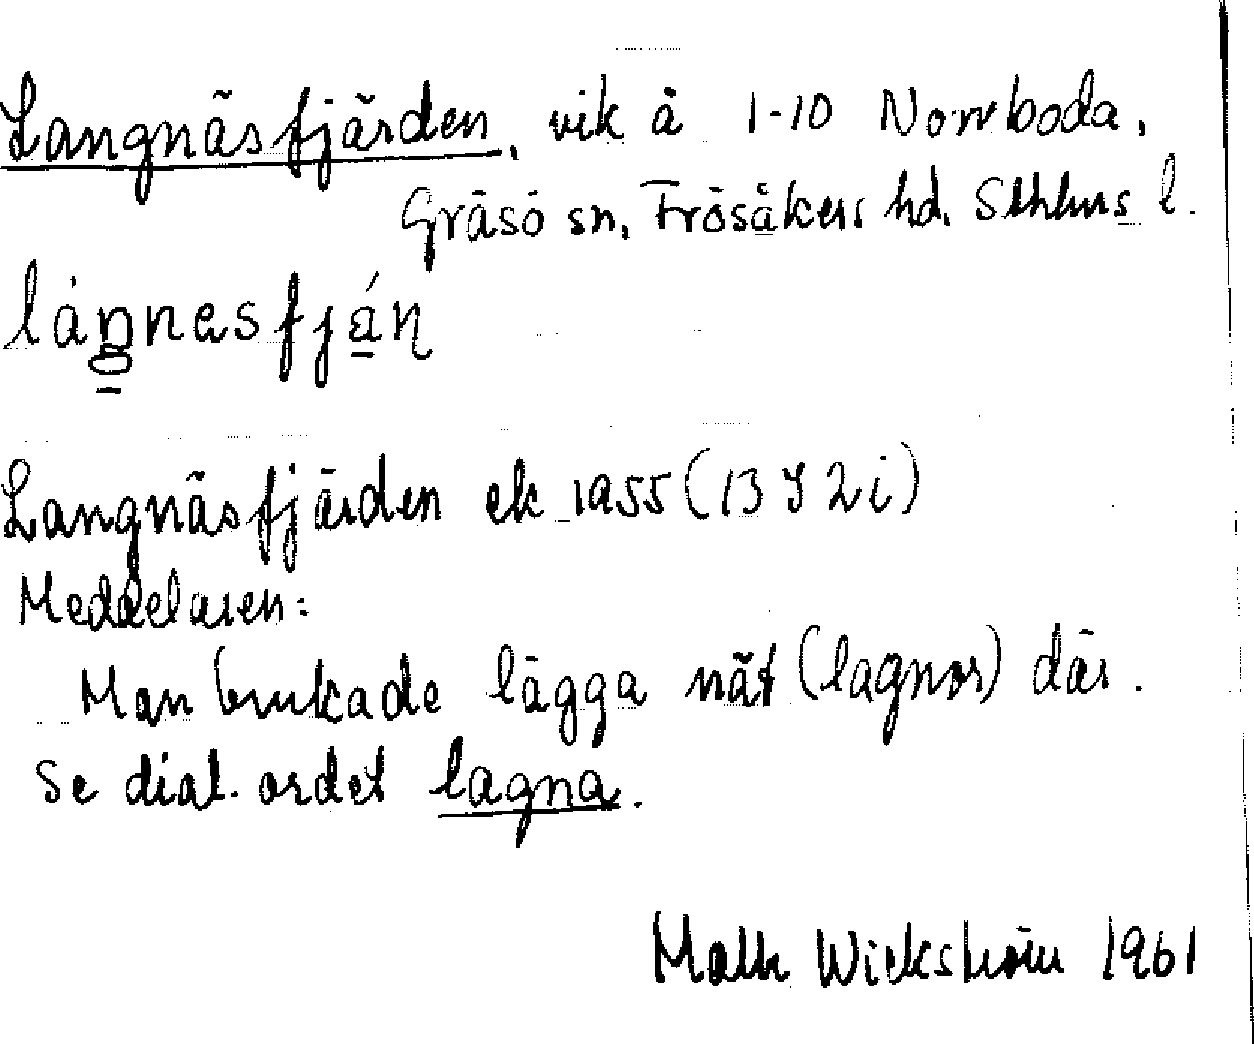 Langnäsfjärden, vik å 1-10 Norrboda,
Gräsö sn, Frösåkers hd, Sthlms l.
lágnesfján
Langnäsfjärden ek 1955 (13 I 2i)
Meddelaren:
Man brukade lägga nät (lagnor) där.
Se dial. ordet lagna.
Wickström 1961